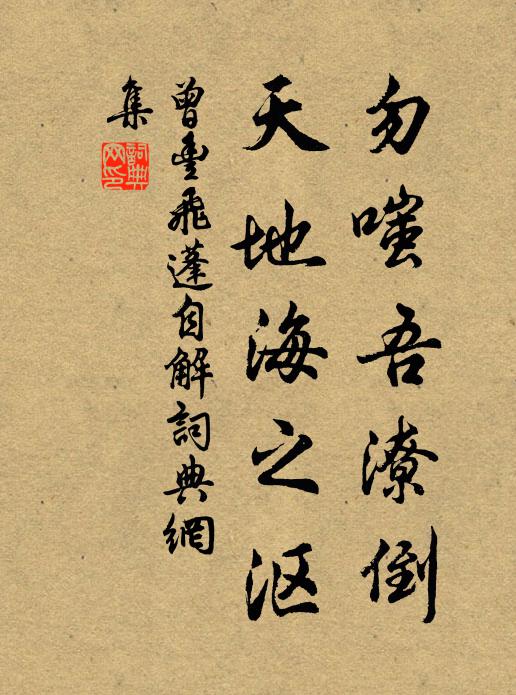 勿嗤吾潦倒
天地海之沤
曾豊飛蓬自解詞典網
集
詞典網印